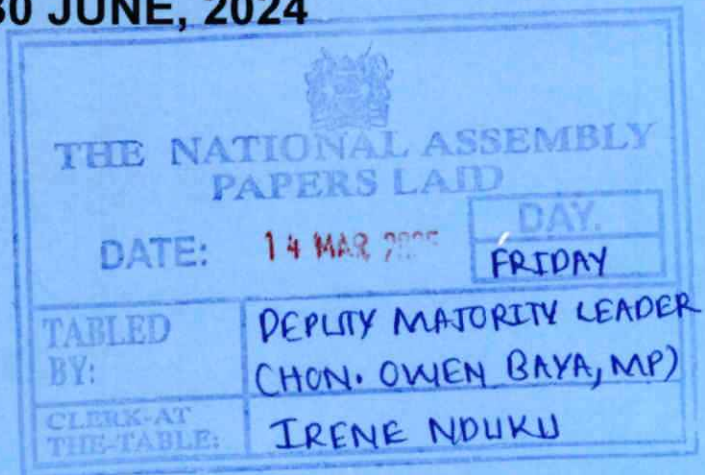 30 JUNE, 2024
THE NATIONAL ASSEMBLY
PAPERS LAID
DATE: 14 MAR
DAY.
FRIDAY
TABLED
BY:
DEPUTY MAJORITY LEADER
(HON. OWEN BAYA, MP)
CLERK-AT
THE-TABLE:
IRENE NDUKU